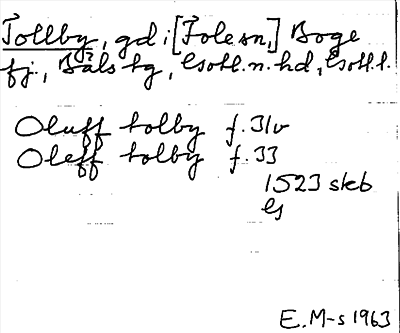 Tollby, gd i [Tolesn,] Boge
fj., Bäls hg, Gotl. n. hd, Gotl. l.
Oluff tolby f. 31v
Oleff tolby f. 33
1523 skb
G
E. M-s 1963